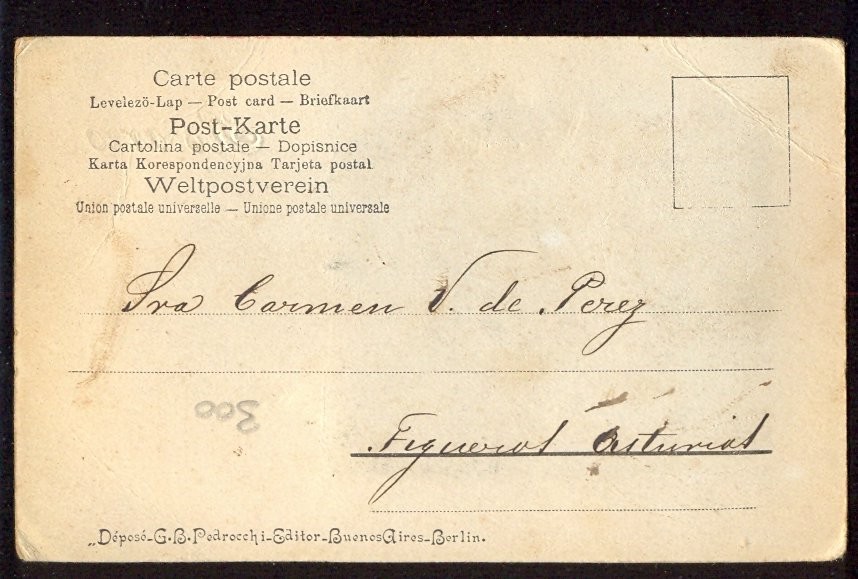 Carte postale
Levelezö-Lap — Post card — Briefkaart
Post-Karte
Cartolina postale — Dopisnice
Karta Korespondencyjna Tarjeta postal
Weltpostverein
Union postale universelle — Unione postale universale
Sra Carmen V. de Perez
300
Figueras Asturias
„Déposé-G.B.Pedrocchi-Editor-BuenosAires-Berlin.